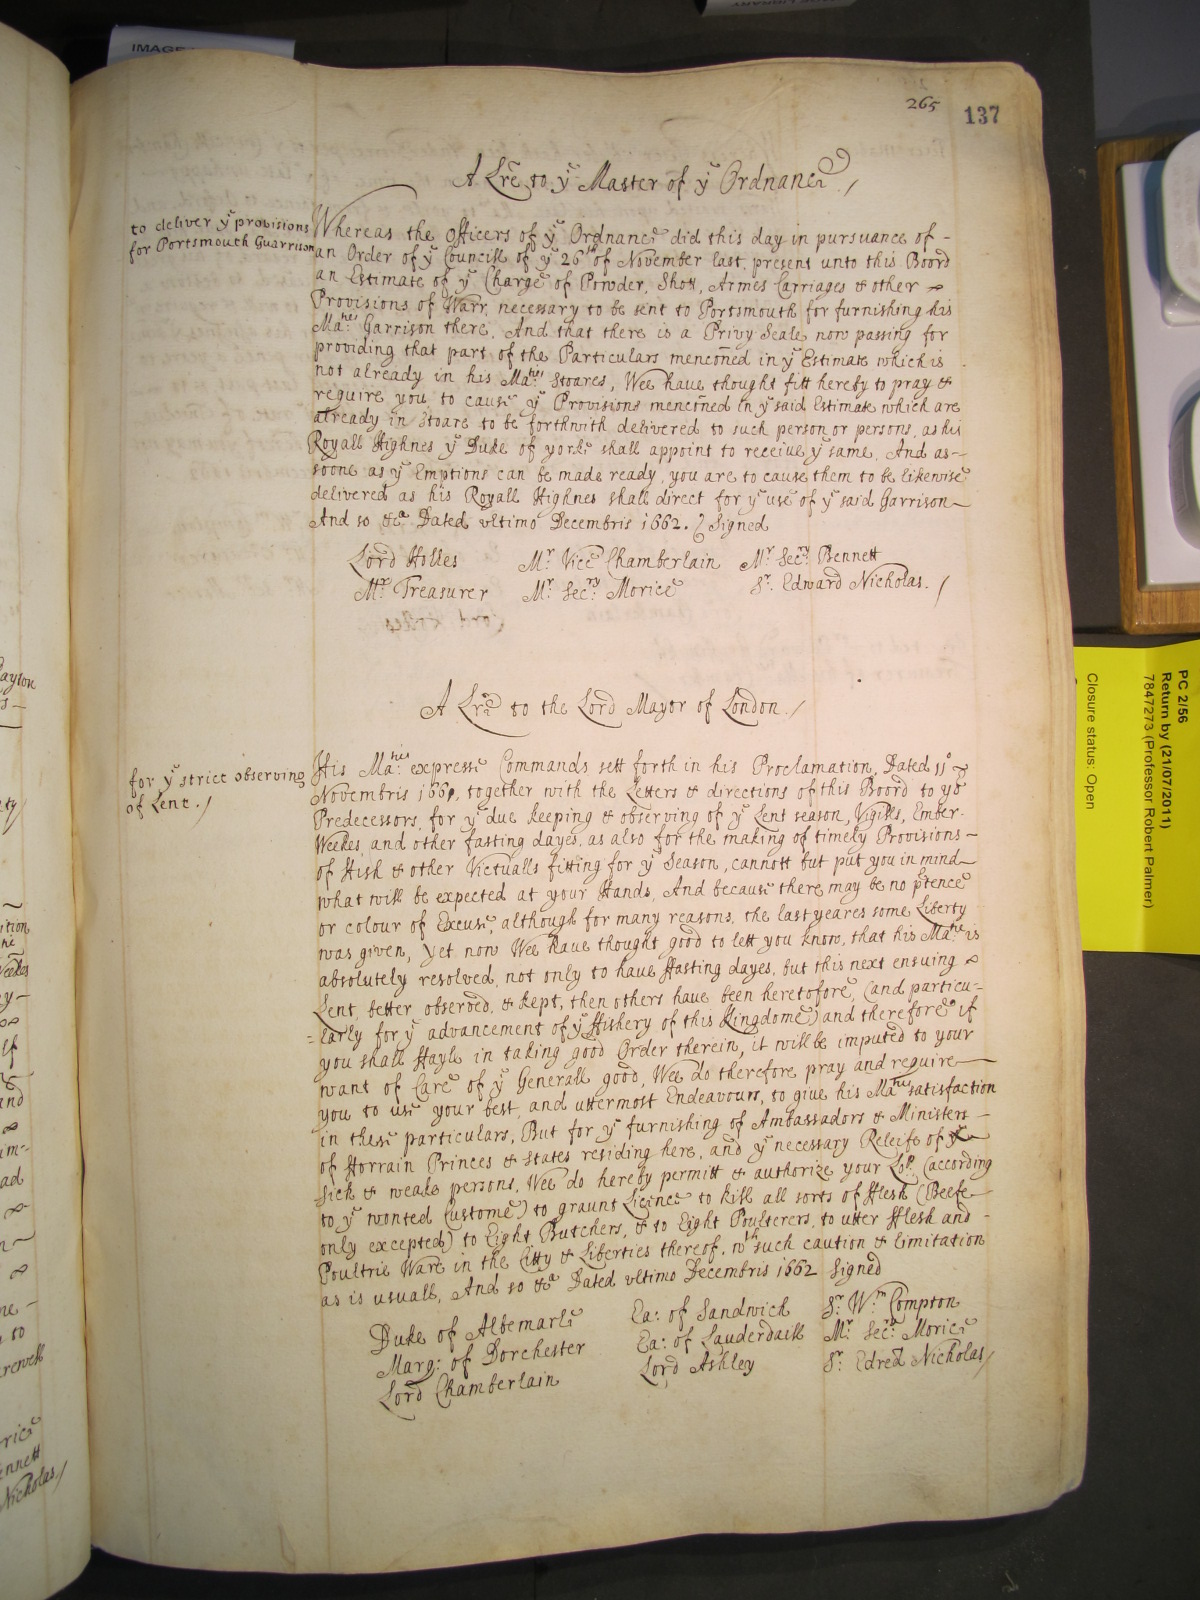 265
137
A Lrē to yͤ Master of yͤ Ordnance /
to deliver yͤ provisions
for Portsmouth Guarrison
Whereas the Officers of yͤ Ordnance did this day in pursuance of -
an Order of yͤ Councill of yͤ 26th of November last, present unto this Board
an Estimate of yͤ Charge of Powder, Shott, Armes Carriages & other
Provisions of Warr, necessary to be sent to Portsmouth for furnishing his
Ma:ties Garrison there, And that there is a Privy Seale now passing for
providing that part of the Particulars menconed in yͤ Estimate which is
not already in his Ma:ties Stoares, Wee have thought fitt hereby to pray &
require you to cause yͤ Provisions menconed in yͤ said Estimate which are
already in Stoare to be forthwith delivered to such person or persons, as his
Royall Highnes yͤ Duke of yorke shall appoint to receive yͤ same, And as-
soone as yͤ Emptions can be made ready, you are to cause them to be likewise
delivered as his Royall Highnes shall direct for yͤ use of yͤ said Garrison
And so &cᵃ Dated ultimo Decembris 1662. Signed
Lord Holles Mr Vice Chamberlain Mr Sec:ry Bennett
Mr Treasurer Mr Sec:ry Morice Sr Edward Nicholas. /
A Lrē to the Lord Mayor of London. /
for yͤ strict observing
of Lent. /
His Ma:ties expresse Commands sett forth in his Proclamation, Dated
Novembris together with the Letters & directions of this Board to yor
Predecessors, for yͤ due keeping & observing of yͤ Lent season, Vigills, Ember-
Weekes, and other fasting dayes, as also for the making of timely Provisions -
of Fish & other Victualls fitting for yͤ Season, cannott but put you in mind
what will be expected at your Hands, And because there may be no ptence
or colour of Excuse, although for many reasons, the last yeares some Liberty
was given, Yet now Wee have thought good to lett you know, that his Matie is
absolutely resolved, not only to have Fasting dayes, but this next ensuing
Lent, better observed, & kept, then others have been heretofore, (and particu-
=larly for yͤ advancement of yͤ Fishery of this Kingdome) and therefore if
you shall Fayle in taking good Order therein, it will be imputed to your
want of Care of yͤ Generall good, Wee do therefore pray and require
you to use your best, and uttermost Endeavours, to give his Matie satisfaction
in these particulars, But for yͤ furnishing of Ambassadors & Ministers -
of Forrain Princes & States residing here, and yͤ necessary Releife of
sick & weake persons, Wee do hereby permitt & authorize your Lop. (according
to yͤ wonted Custome) to graunt Licence to kill all sorts of Flesh (Beefe
only excepted) to Eight Butchers, & to Eight Poulterers, to utter Flesh and -
Poultrie Ware in the Citty & Liberties thereof, wth such caution & limitation
as is usuall, And so &cᵃ Dated ultimo Decembris 1662 Signed
Duke of Albemarle Ea: of Sandwich Sr Wm Compton
Marq: of Dorchester Ea: of Lauderdaill Mr Sec:ry Morice
Lord Chamberlain Lord Ashley Sr Edred Nicholas /
PC 2/56
Return by (21/07/2011)
7847273 (Professor Robert Palmer)
Closure status: Open